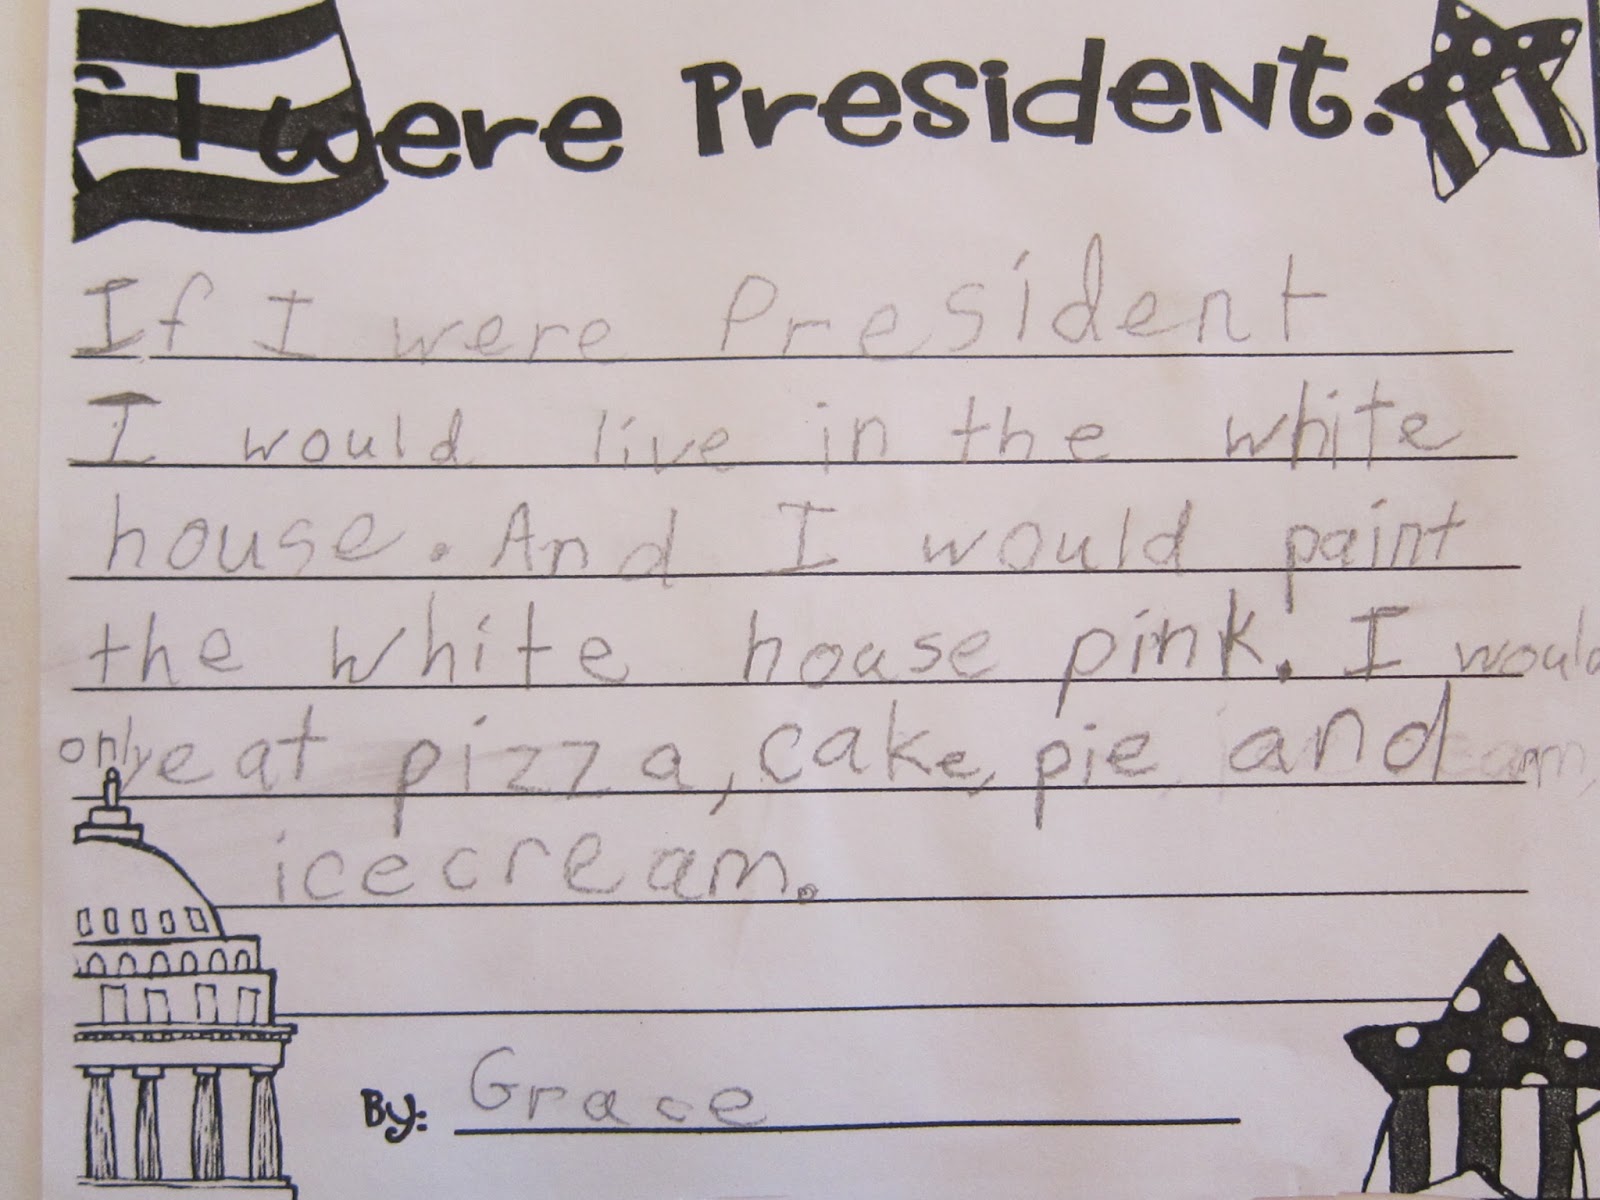 f I were President.
If I were President
I would live in the white
house. And I would paint
the white house pink. I would
only eat pizza, cake, pie and
icecream.
By: Grace